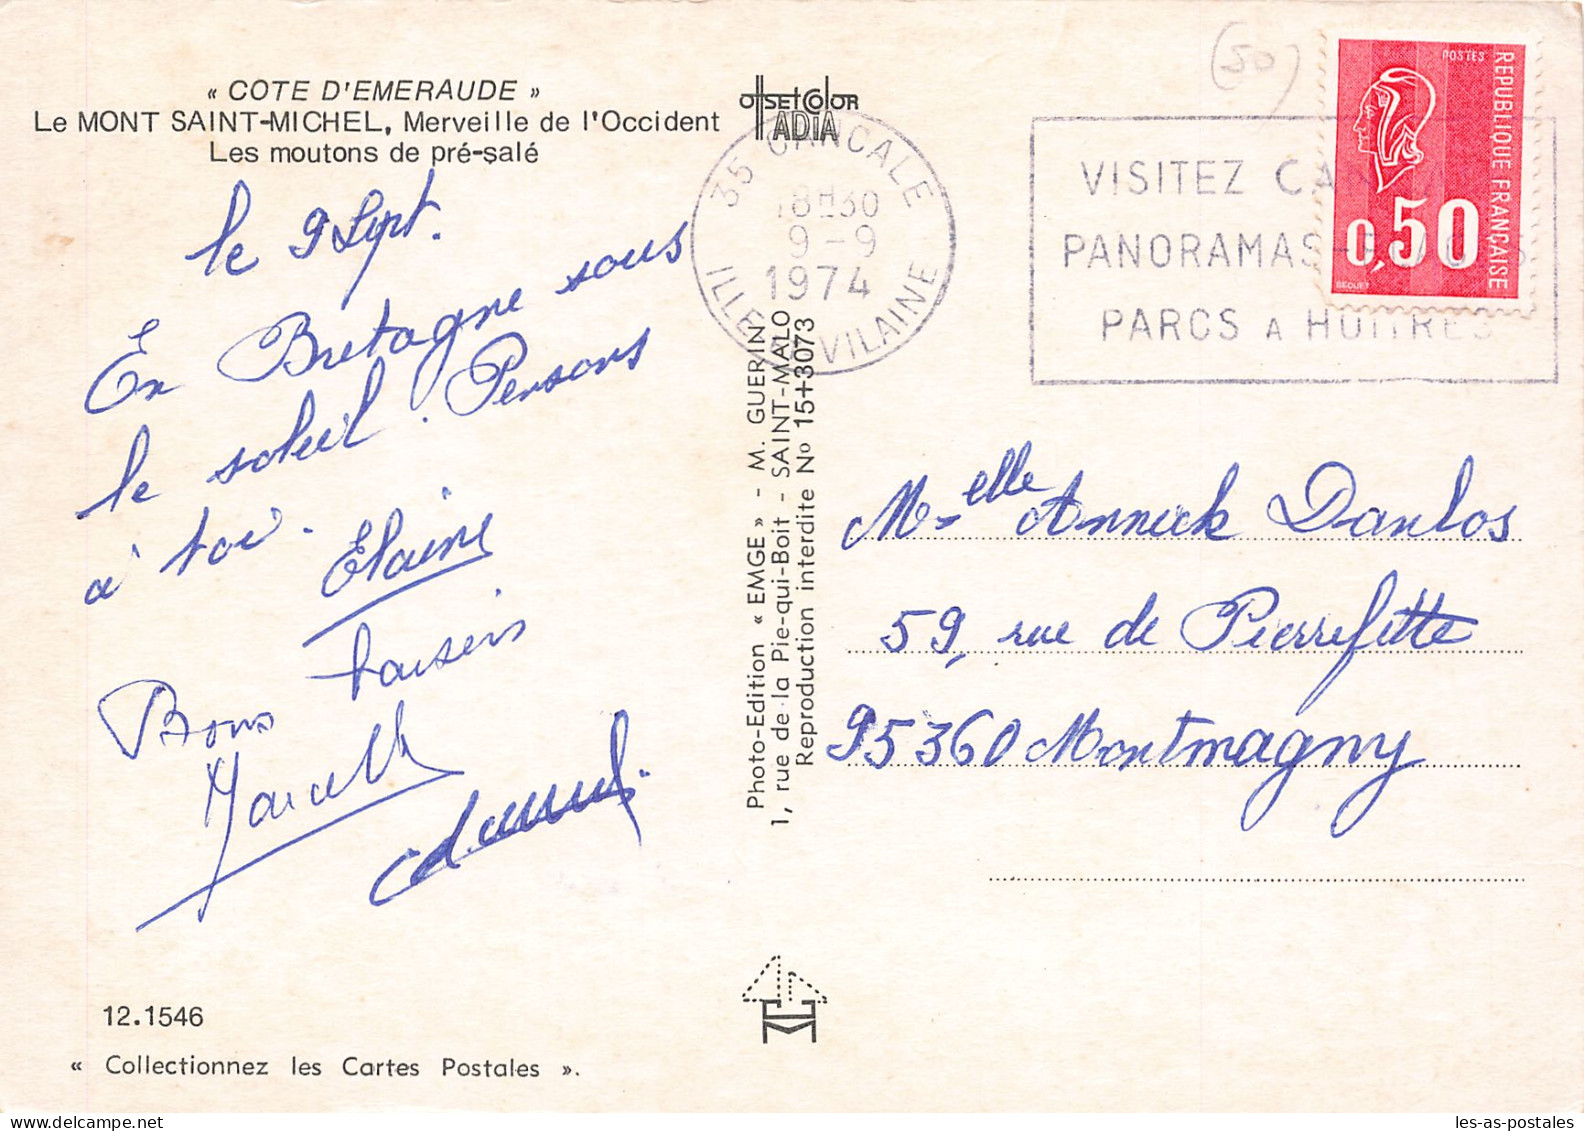 « COTE D'EMERAUDE »
Le MONT SAINT-MICHEL, Merveille de l'Occident
Les moutons de pré-salé
le 9 Sept.
En Bretagne sous
le soleil. Pensons
à toi.
Elaine
Bons baisers
Marcelle
OFFSETCOLOR
IADIA
35 CANCALE
18H30
9-9
1974
ILLE ET VILAINE
Photo-Edition « EMGE » - M. GUERIN
1, rue de la Pie-qui-Boit - SAINT-MALO
Reproduction interdite No 15+3073
(50)
VISITEZ CA
PANORAMAS-P AGES
PARCS A HUITRES
POSTES
REPUBLIQUE FRANÇAISE
0,50
BEQUET
Melle Annick Danlos
59, rue de Pierrefitte
95360 Montmagny
12.1546
« Collectionnez les Cartes Postales ».
les-as-postales.com